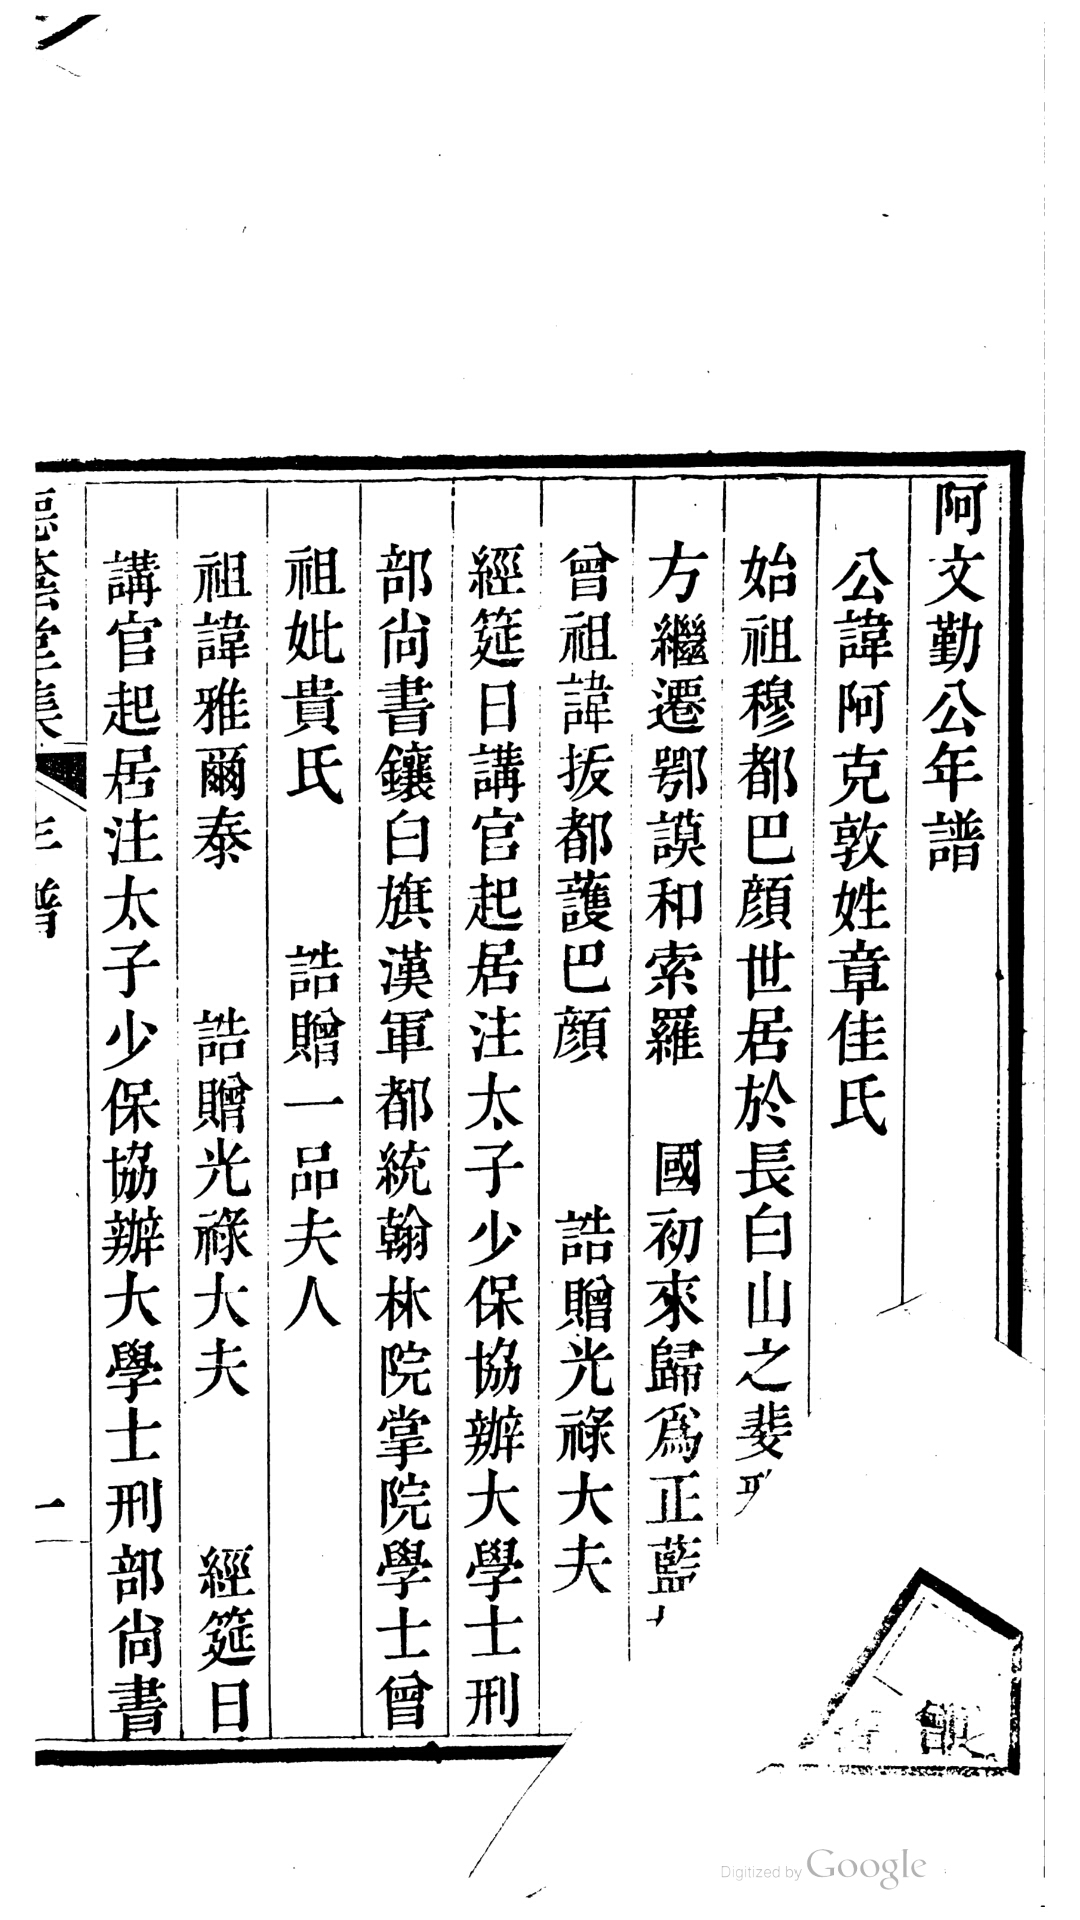 阿文勤公年譜
公諱阿克敦姓章佳氏
始祖穆都巴顏世居於長白山之斐
方繼遷鄂謨和索羅　國初來歸爲正藍
曾祖諱扳都護巴顏　　誥贈光祿大夫
經筵日講官起居注太子少保協辦大學士刑
部尚書鑲白旗漢軍都統翰林院掌院學士曾
祖妣貴氏　　誥贈一品夫人
祖諱雅爾泰　　誥贈光祿大夫　　經筵日
講官起居注太子少保協辦大學士刑部尚書
德蔭堂集　年譜　一
Digitized by Google